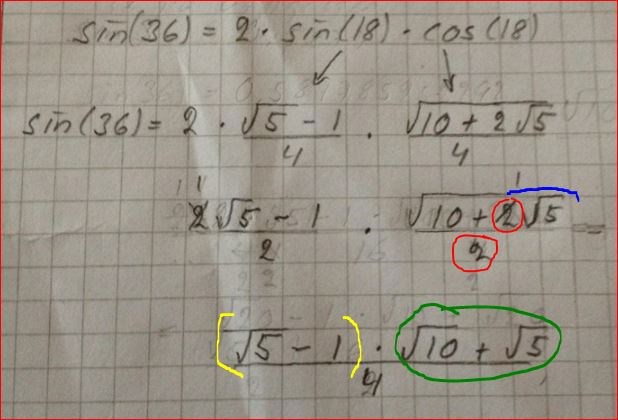 sin(36) = 2 · sin(18) · cos(18)
sin(36) = 2 · (√5 - 1)/4 · √(10 + 2√5)/4
2√5 - 1/2 · √(10 + 2√5)/2 =
(√5 - 1) · √10 + √5/4